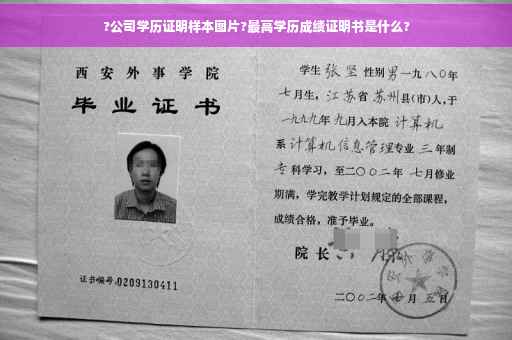 ?公司学历证明样本图片?最高学历成绩证明书是什么?
西安外事学院
毕业证书
证书编号:0209130411
学生 张坚 性别 男 一九八〇年
七月生,江苏省 苏州县(市)人,于
一九九九年 九月入本院 计算机
系 计算机信息管理专业 三 年制
专科学习,至二〇〇二年 七月修业
期满,学完教学计划规定的全部课程,
成绩合格,准予毕业。
院长
二〇〇二年 月 五日